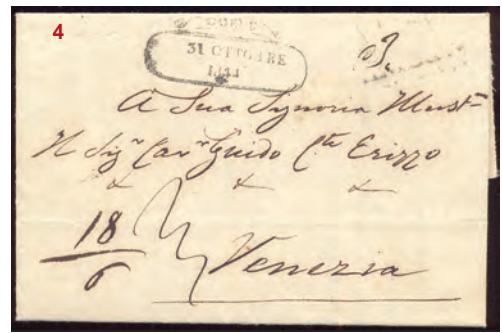 4
31 OTTOBRE
A Sua Signoria Illust.ma
Il Sig.r Cav.r Guido C.te Erizzo
& & &
18
6
Venezia